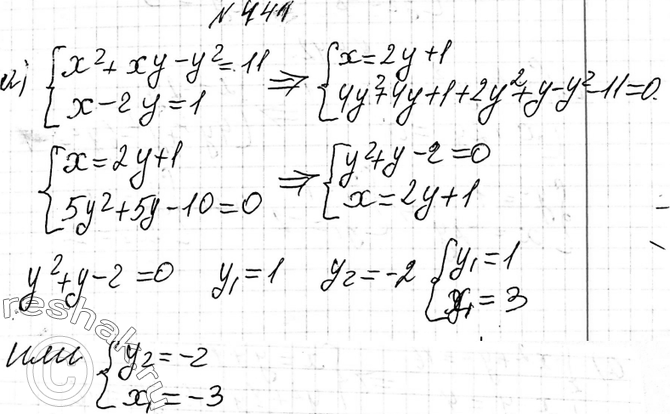 №441
а) { x²+xy-y²=11 ⇒ { x=2y+1
{ x-2y=1 { 4y²+4y+1+2y²+y-y²-11=0.
{ x=2y+1 ⇒ { y²+y-2=0
{ 5y²+5y-10=0 { x=2y+1
y²+y-2=0 y₁=1 y₂=-2 { y₁=1
{ x₁=3
или { y₂=-2
{ x₁=-3
reshak.ru